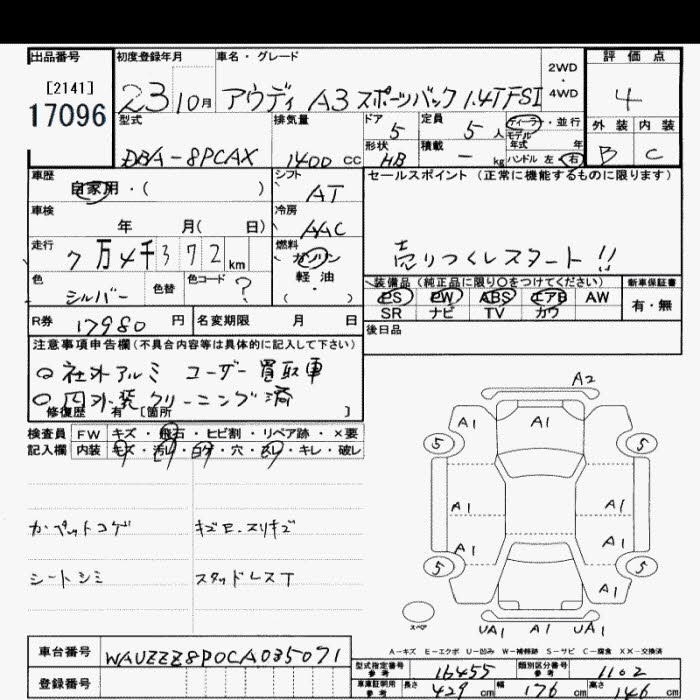 出品番号 初度登録年月 車名・グレード 評価点
[2141]
17096
23 10月 アウディ A3 スポーツバック 1.4TFSI
2WD
・
4WD
4
型式 排気量 ドア 定員 外装 内装
DBA-8PCAX 1400 cc 5 5人
ディーラー・並行
モデル
年式 年
形状 HB 積載 - kg ハンドル 左 右
B C
車歴 シフト セールスポイント (正常に機能するものに限ります)
自家用・( ) AT
車検 冷房
年 月( 日) AAC
走行 燃料
7万4千372km ガソリン
軽油
・
( )
売りつくしスタート!!
色 色替 色コード
シルバー ?
装備品 (純正品に限り○をつけてください) 新車保証書
PS PW ABS エアB AW 有・無
SR ナビ TV カワ
R券 17980 円 名変期限 月 日
後日品
注意事項申告欄(不具合内容等は具体的に記入して下さい)
○社外アルミ コーダー買取車
○内外装クリーニング済
修復歴 有 [箇所 ]
検査員 FW キズ・飛石・ヒビ割・リペア跡・×要
記入欄 内装 キズ・汚レ・コゲ・穴・スレ・キレ・破レ
カーペットコゲ キズE.スリキズ
シートシミ スタッドレスT
A2
A1 A1
5 5
A1 A1
A1 A1
5 5
A1
スペア
UA1 A1 UA1
A-キズ E-エクボ U-凹み W-補修跡 S-サビ C-腐食 XX-交換済
車台番号 WAUZZZ8P0CA035071
型式指定番号
参考
16455
類別区分番号
参考
1102
登録番号
車庫証明用
参考
長さ 429 cm 幅 176 cm 高さ 146 cm